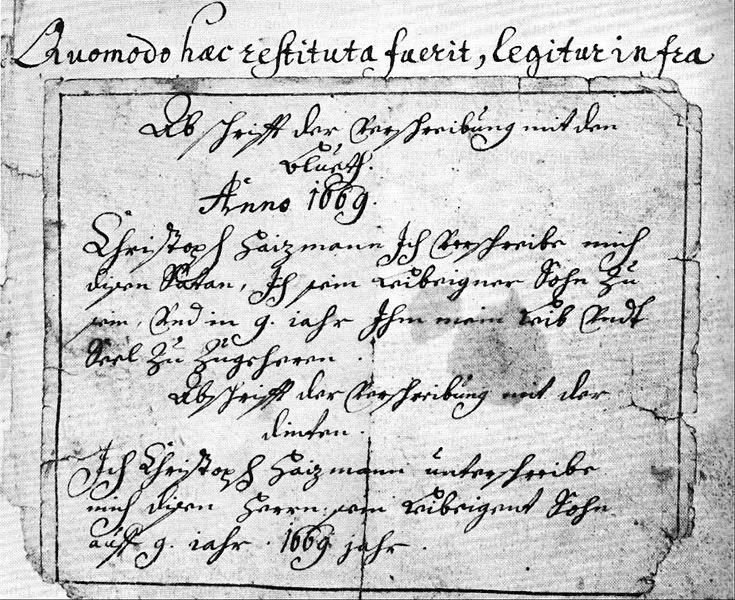 Quomodo hæc restituta fuerit, legitur infra
Abschrifft der Verschreibung mit den
blueth.
Anno 1669.
Christoph Haizmann Ich Verschreibe mich
disen Satan, Ich sein Leibeigner Sohn Zu
sein, Vnd in 9. iahr Ihm mein Leib Vndt
Seel Zu Zugeheren.
Abschrifft der Verschreibung mit der
dinten.
Ich Christoph Haizmann unterschreibe
mich disen Herrn: sein Leibeigent Sohn
auff 9. iahr. 1669 jahr.